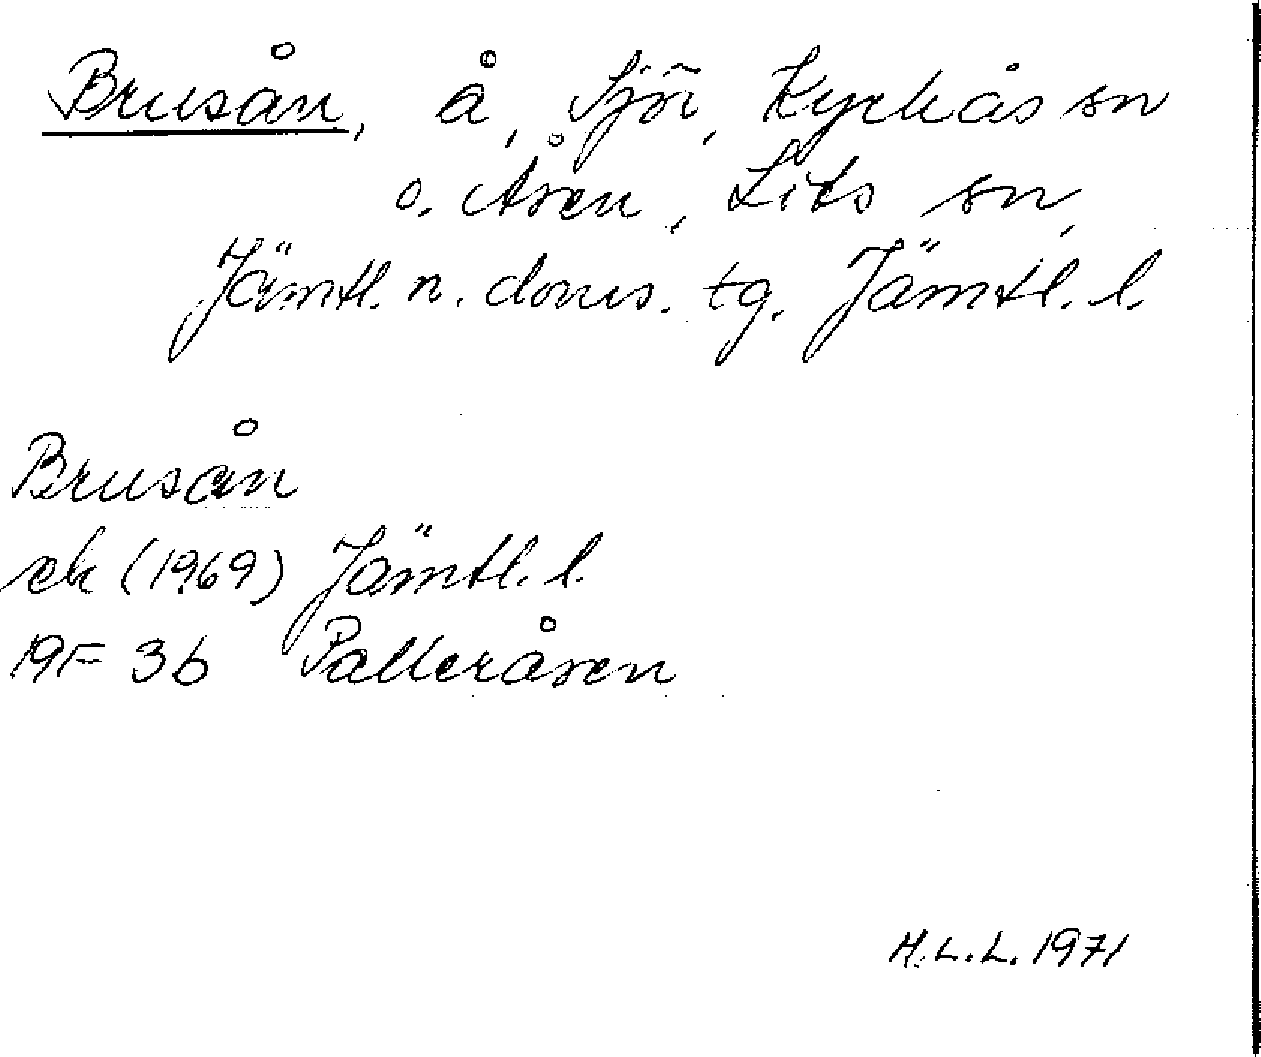 Brusån, å, Sjör, Kyrkås sn
o. Åsen, Lits sn,
Jämtl. n. doms. tg. Jämtl. l.
Brusån
ek (1969) Jämtl. l.
19F 3b Palleråsen
H.L.L. 1971